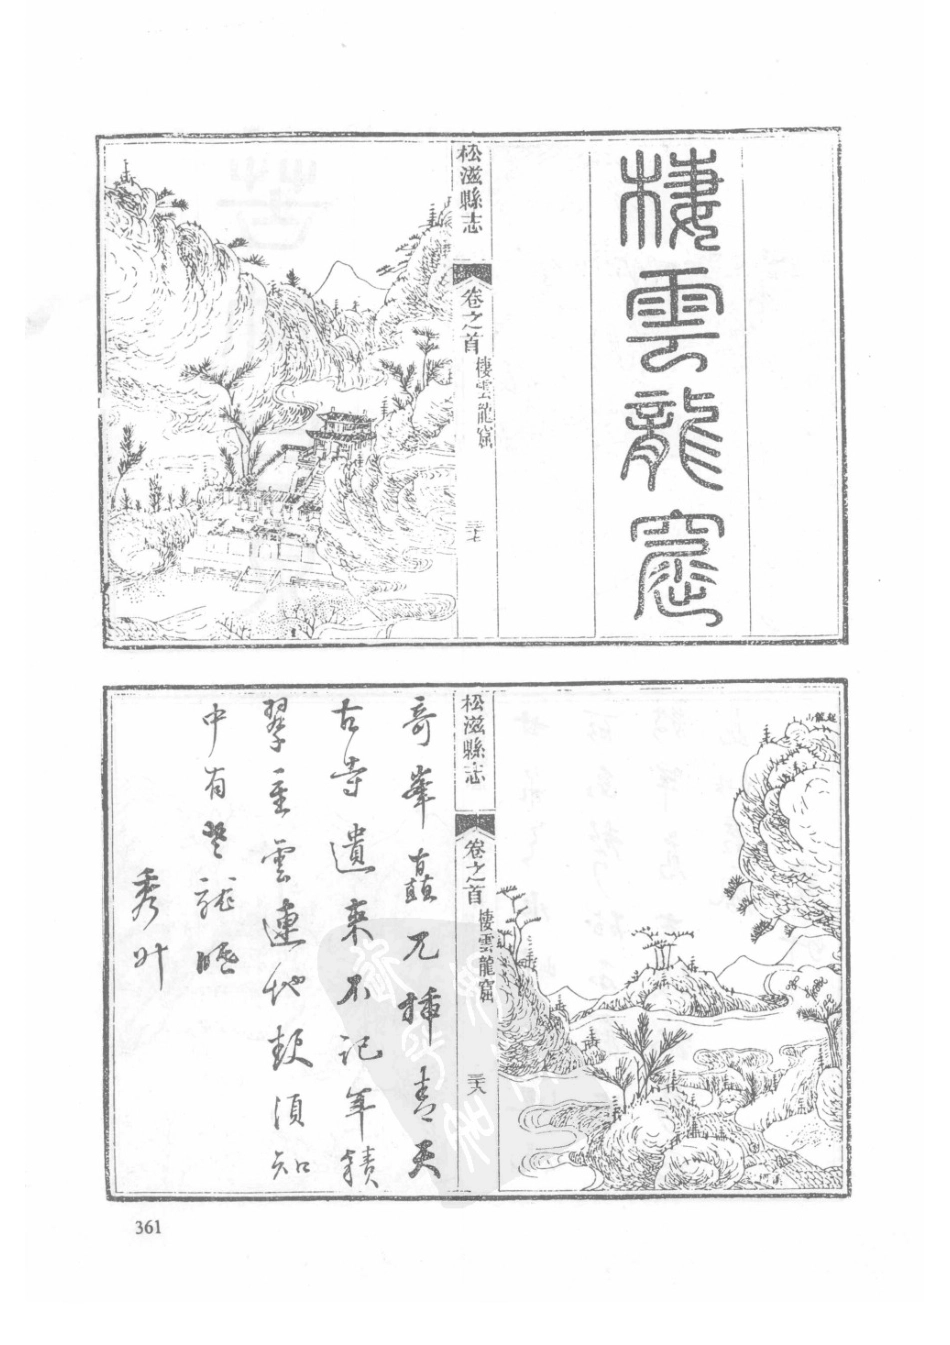 棲雲龍窟
松滋縣志
卷之首
棲雲龍窟
三十七
起龍山
松滋縣志
卷之首
棲雲龍窟
三十八
奇峯矗兀插青天
古寺遺來不記年積
翠重雲連地軟須知
中有老龍眠
秀叶
361